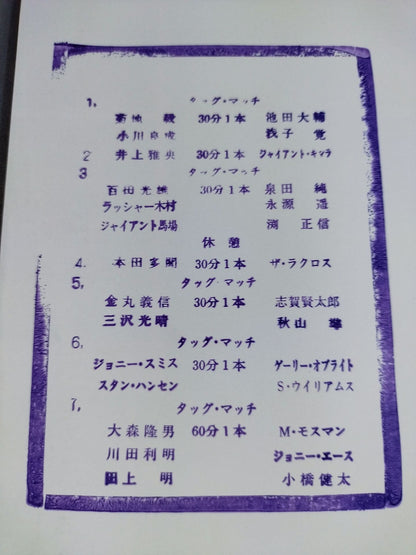 1. タッグ・マッチ
菊地 毅 30分1本 池田大輔
小川良成 我子 覚
2 井上雅央 30分1本 ジャイアント・キマラ
3 タッグ・マッチ
百田光雄 30分1本 泉田 純
ラッシャー木村 永源 遥
ジャイアント馬場 渕 正信
休憩
4. 本田多聞 30分1本 ザ・ラクロス
5. タッグ・マッチ
金丸義信 30分1本 志賀賢太郎
三沢光晴 秋山 準
6. タッグ・マッチ
ジョニー・スミス 30分1本 ゲーリー・オブライト
スタン・ハンセン S・ウイリアムス
7. タッグ・マッチ
大森隆男 60分1本 M・モスマン
川田利明 ジョニー・エース
田上 明 小橋健太